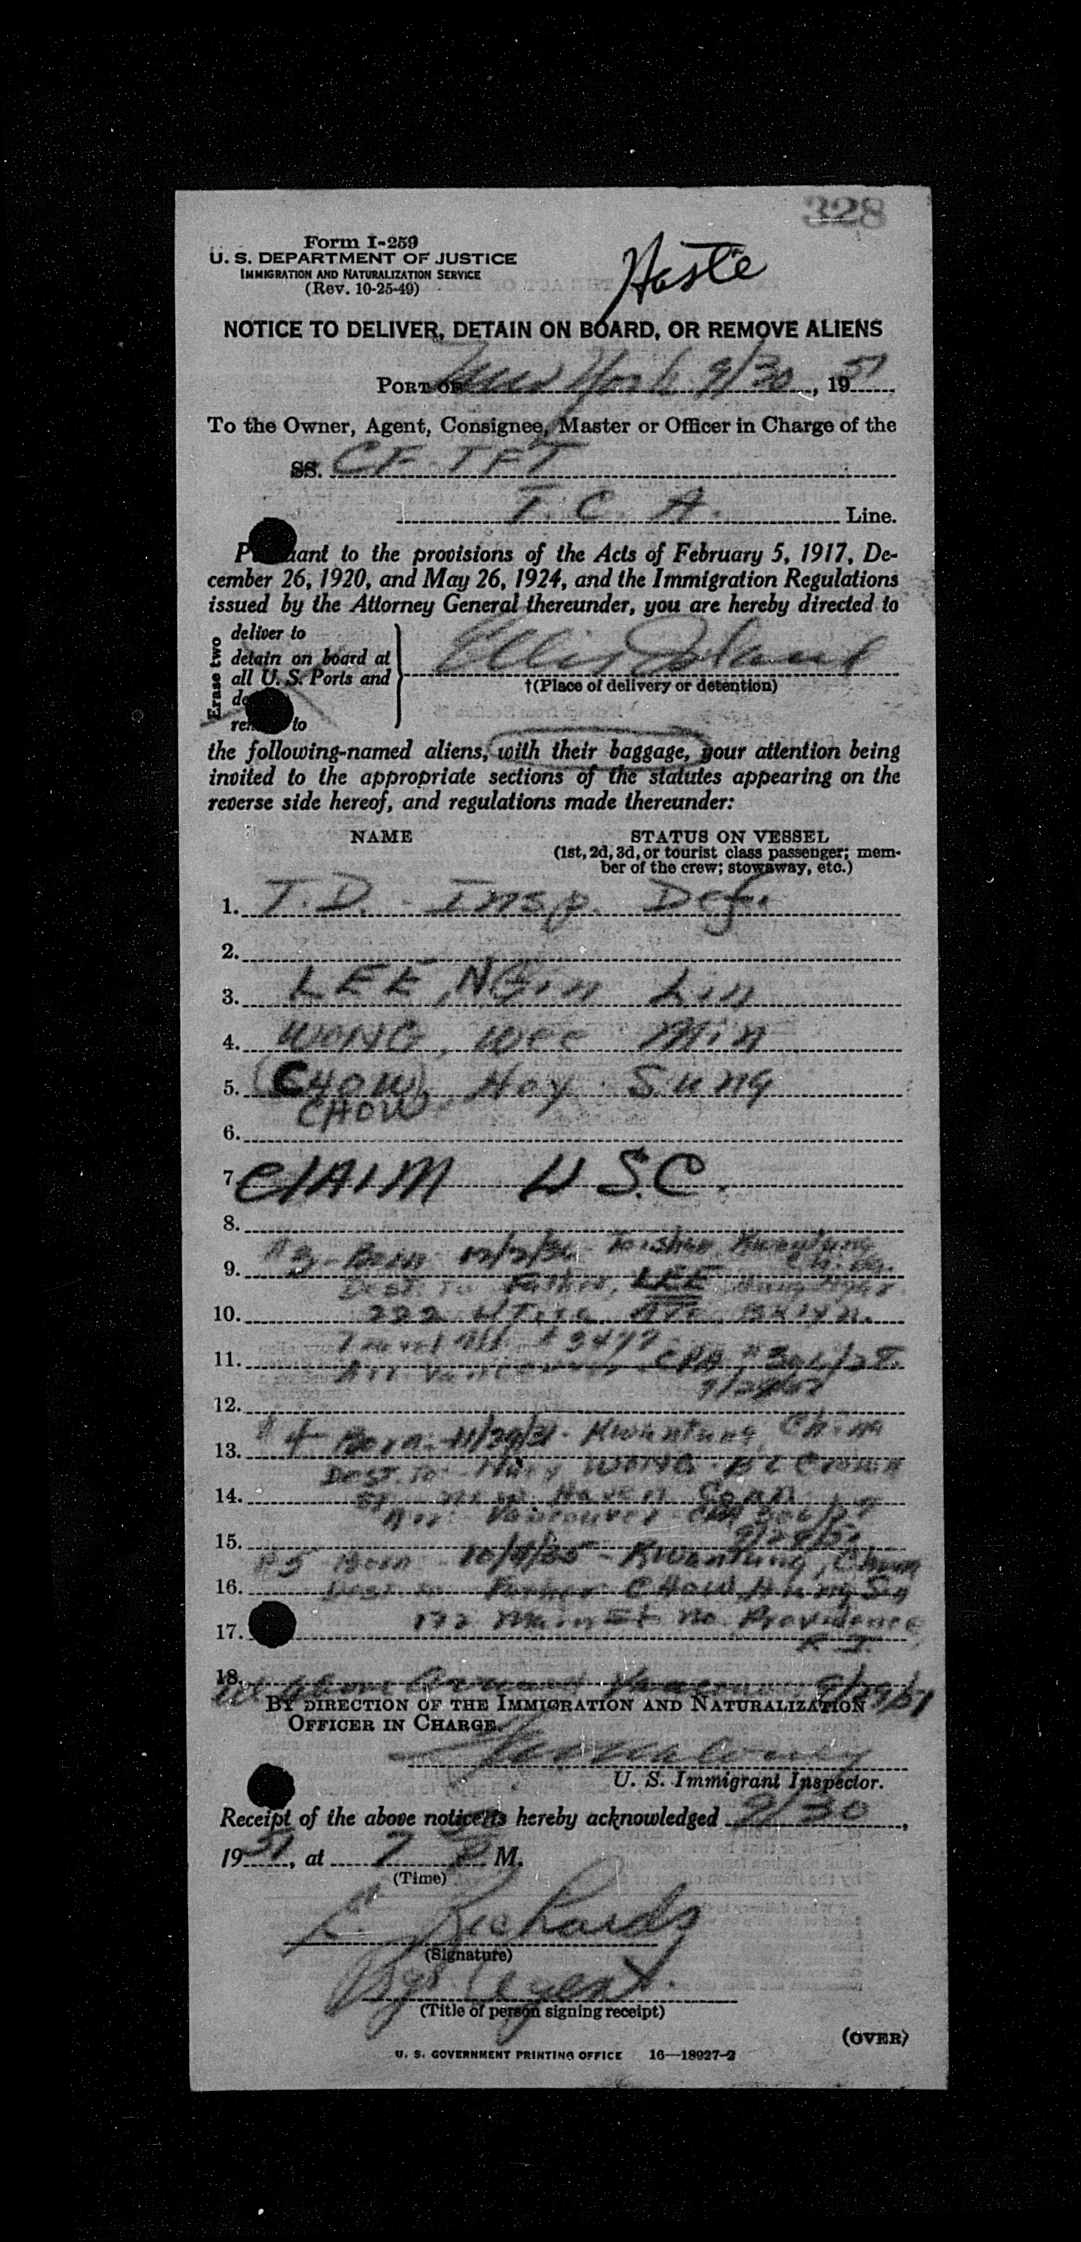 328
Form I-259
U. S. DEPARTMENT OF JUSTICE
IMMIGRATION AND NATURALIZATION SERVICE
(Rev. 10-25-49)
Haste
NOTICE TO DELIVER, DETAIN ON BOARD, OR REMOVE ALIENS
PORT OF New York 9/30, 1951
To the Owner, Agent, Consignee, Master or Officer in Charge of the
SS. CF-TFT
T. C. A. Line.
Pursuant to the provisions of the Acts of February 5, 1917, De-
cember 26, 1920, and May 26, 1924, and the Immigration Regulations
issued by the Attorney General thereunder, you are hereby directed to
Erase two
deliver to
detain on board at
all U. S. Ports and
to
Ellis Island
†(Place of delivery or detention)
the following-named aliens, with their baggage, your attention being
invited to the appropriate sections of the statutes appearing on the
reverse side hereof, and regulations made thereunder:
NAME STATUS ON VESSEL
(1st, 2d, 3d, or tourist class passenger; mem-
ber of the crew; stowaway, etc.)
1. T.D. - Insp. Def.
2.
3. LEE, NGin Lin
4. WONG, Wee Min
5. (CHOW) Hoy Sung
CHOW
6.
7. CLAIM U S.C.
8.
#3 - Born 12/2/36 - Toishan Kwantung
9. China
Dest. to Father, LEE
10. 222 Ave Bklyn.
Travel Aff #3477
11. Arr Vancouver CPA #306/28
9/29/51
12.
#4 Born 11/29/31 - Kwantung, China
13.
Dest. to WONG
14. St New Haven Conn
Arr Vancouver CPA 306/28
15. 9/29/51
#5 Born 10/9/35 - Kwantung, China
16. Dest to Father CHOW Hung
172 Main St No. Providence
17. R I.
18. All above arrived Vancouver 9/29/51
BY DIRECTION OF THE IMMIGRATION AND NATURALIZATION
OFFICER IN CHARGE.
U. S. Immigrant Inspector.
Receipt of the above notice is hereby acknowledged 9/30,
1951, at 7 P M.
(Time)
E. Richards
(Signature)
Agent.
(Title of person signing receipt)
(OVER)
U. S. GOVERNMENT PRINTING OFFICE 16—18927-2